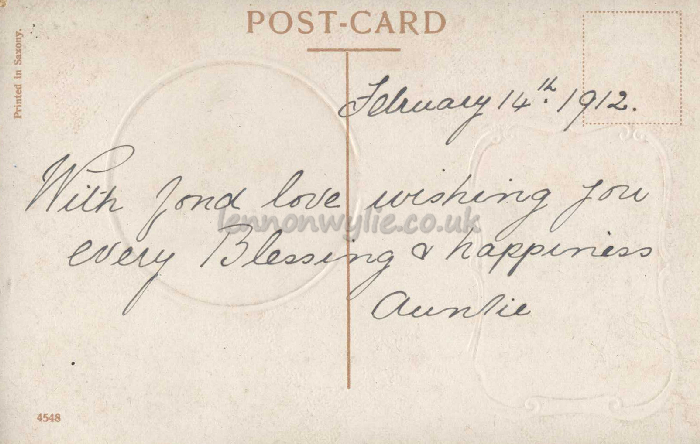 POST-CARD
Printed in Saxony.
February 14th. 1912.
With fond love wishing you
lennonwylie.co.uk
every Blessing & happiness
Auntie
4548